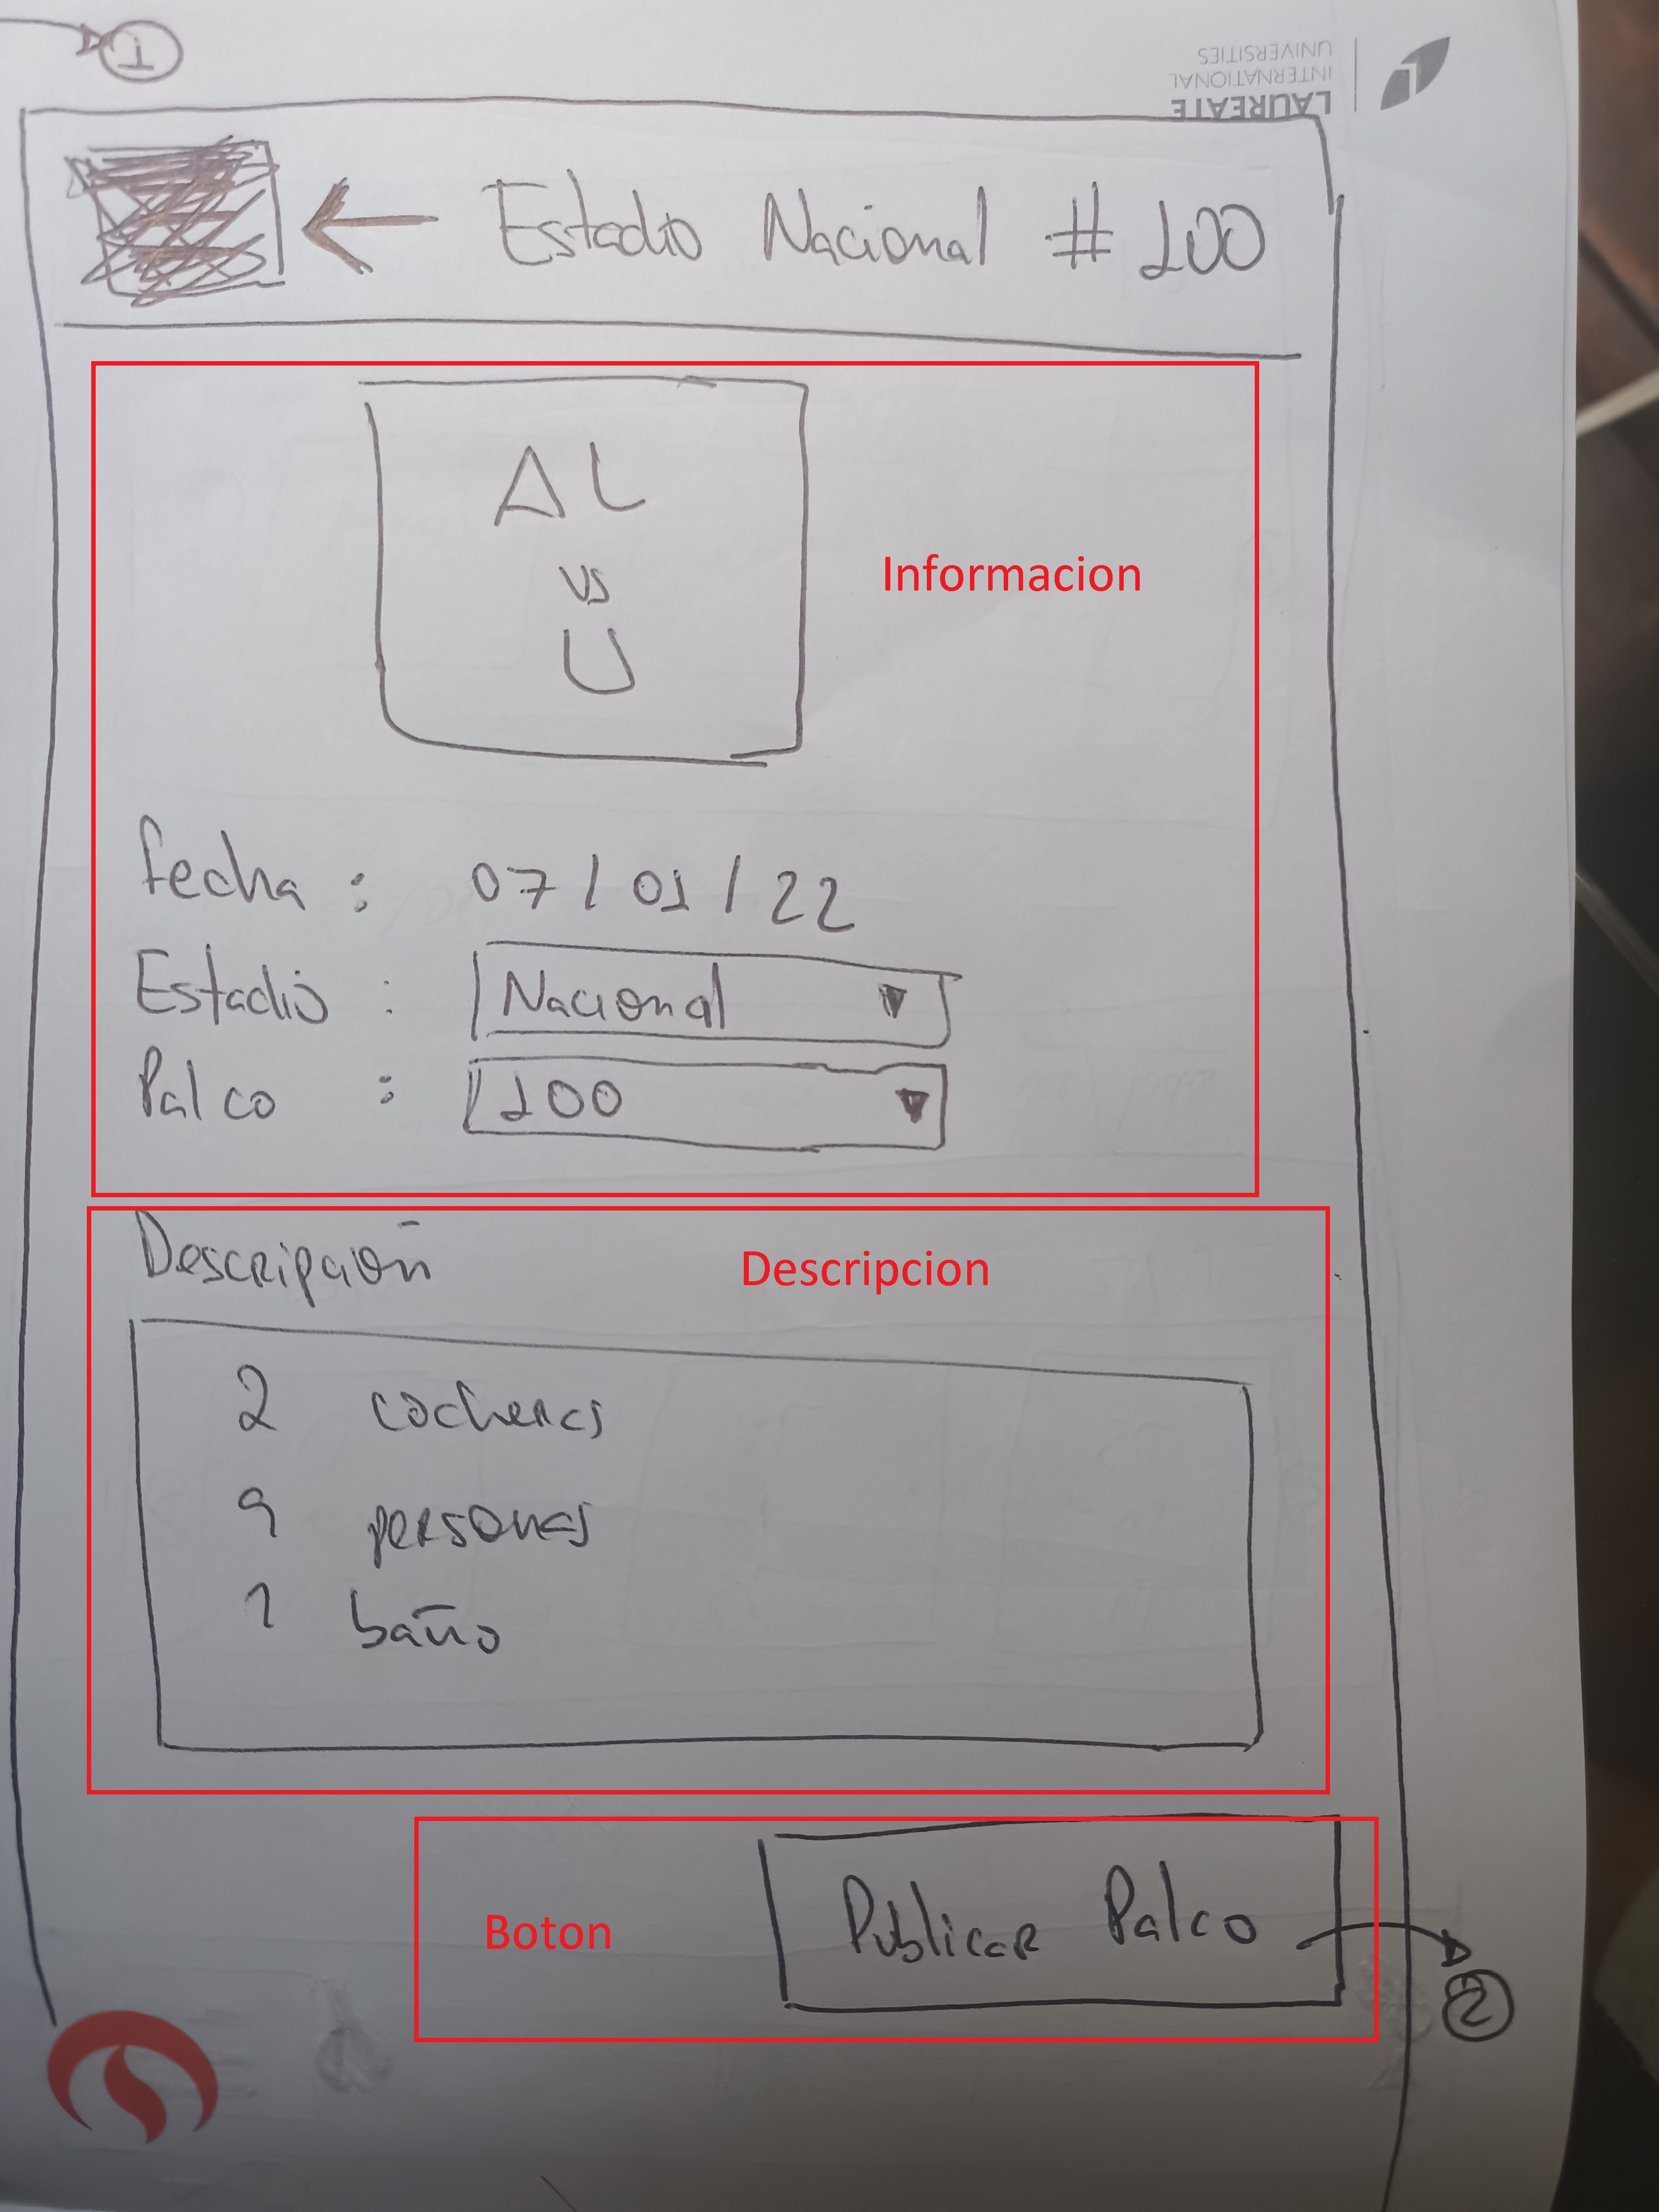 1
LAUREATE
INTERNATIONAL
UNIVERSITIES
Estadio Nacional # 100
AL
vs
U
Informacion
fecha : 07/01/22
Estadio : Nacional
Palco : 100
Descripción
Descripcion
2 cocheras
9 personas
1 baño
Boton
Publicar Palco
2